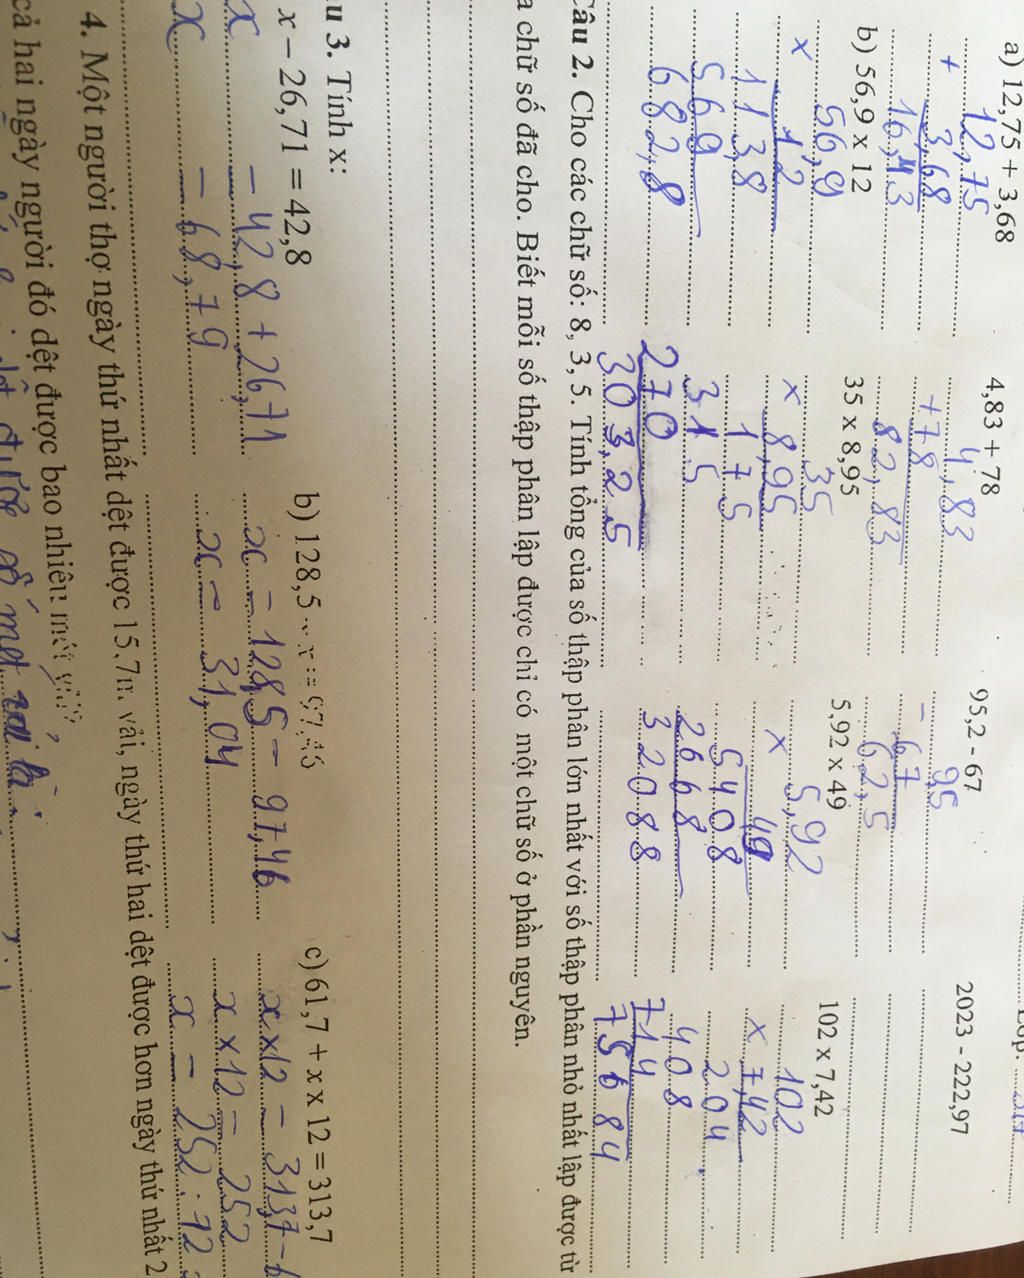 Lớp:
a) 12,75 + 3,68 4,83 + 78 95,2 - 67 2023 - 222,97
12,75 4,83 95
+ 3,68 +78 - 67
16,43 82,83 62,5
b) 56,9 x 12 35 x 8,95 5,92 x 49 102 x 7,42
56,9 35 5,92 102
x 1,2 x 8,95 x 49 x 7,42
113,8 175 5408 204
569 315 2668 408
682,8 270 32088 714
303,25 75684
Câu 2. Cho các chữ số: 8, 3, 5. Tính tổng của số thập phân lớn nhất với số thập phân nhỏ nhất lập được từ
a chữ số đã cho. Biết mỗi số thập phân lập được chỉ có một chữ số ở phần nguyên.
u 3. Tính x:
x – 26,71 = 42,8 b) 128,5 – x = 97,46 c) 61,7 + x x 12 = 313,7
x = 42,8 + 26,71 x = 128,5 - 97,46 x x 12 = 313,7 - 6
x = 68,79 x = 31,04 x x 12 = 252
x = 252 : 12
4. Một người thợ ngày thứ nhất dệt được 15,7m vải, ngày thứ hai dệt được hơn ngày thứ nhất 2
cả hai ngày người đó dệt được bao nhiêu mét vải?
dệt được số mét vải là: